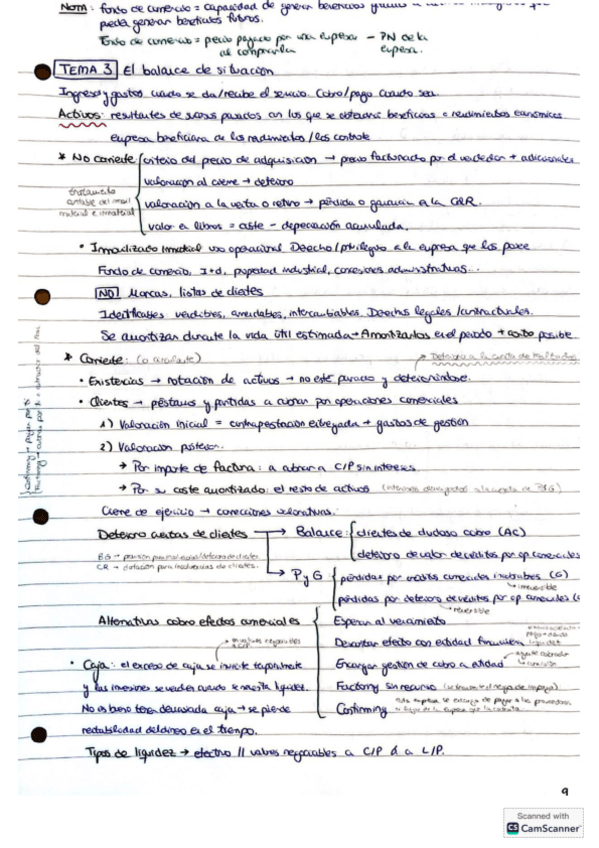 NOTA: fondo de comercio = capacidad de generar beneficios
pueda generar beneficios futuros.
Fondo de comercio = precio pagado por una empresa – PN de la
al comprarla empresa.
TEMA 3 El balance de situación
Ingresos y gastos cuando se da/recibe el servicio. Cobro/pago cuando sea.
Activos: resultantes de sucesos pasados con los que se obtendrán beneficios o rendimientos económicos
empresa beneficiaria de los rendimientos/los controla
* No corriente criterio del precio de adquisición → precio facturado por el vendedor + adicionales
tratamiento
contable del inmov
material e inmaterial
valoración al cierre → deterioro
valoración a la venta o retiro → pérdida o ganancia a la CRR.
valor en libros = coste – depreciación acumulada.
• Inmovilizado Inmaterial uso operacional. Derecho/privilegio a la empresa que los posee
Fondo de comercio, I+d, propiedad industrial, concesiones administrativas...
NO Marcas, listas de clientes
Identificables vendibles, arrendables, intercambiables. Derechos legales/contractuales.
Se amortizan durante la vida útil estimada → Amortizarlos en el periodo + corto posible
* Corriente: (o circulante)
→ Deterioro a la cuenta de resultados
• Existencias → rotación de activos → no esté parado y deteriorándose.
• Clientes → préstamos y partidas a cobrar por operaciones comerciales
1) Valoración inicial = contraprestación entregada + gastos de gestión
2) Valoración posterior.
→ Por importe de factura: a cobrar a C/P sin intereses
→ Por su coste amortizado: el resto de activos (intereses devengados a la cuenta de PyG)
Cierre de ejercicio → correcciones valorativas.
Deterioro cuentas de clientes → Balance: clientes de dudoso cobro (AC)
deterioro de valor de créditos por op comerciales
→ PyG pérdidas por créditos comerciales incobrables (G)
→ irreversible
pérdidas por deterioro de créditos por op comerciales
→ reversible
Alternativas cobro efectos comerciales Esperar al vencimiento
Descontar efecto con entidad financiera
Encargar gestión de cobro a entidad
Factoring sin recurso
Confirming
• Caja: el exceso de caja se invierte temporalmente
y las inversiones se venden cuando se necesita liquidez.
No es bueno tener demasiada caja → se pierde
rentabilidad del dinero en el tiempo.
Tipos de liquidez → efectivo // valores negociables a C/P ó a L/P.
9
Scanned with
CS CamScanner